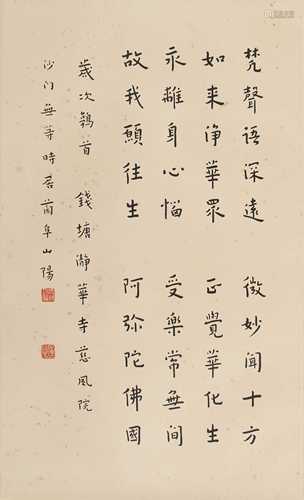 梵聲語深遠 微妙聞十方
如来淨華眾 正覺華化生
永離身心惱 受樂常無間
故我願往生 阿弥陀佛國
歲次鶉首 錢塘瀞華寺慈風院
沙门無等時居蕭阜山陽